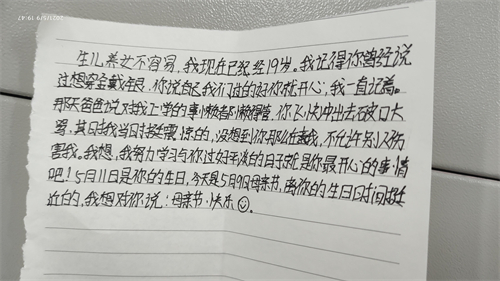 2021/5/9 19:47
生儿养女不容易,我现在已经19岁。我记得你曾经说
过想穿金戴银,你说每次我们过的好你就开心,我一直记着。
那天爸爸说对我上学的事懒都懒得管,你飞快冲出去破口大
骂,其实我当时挺震惊的,没想到你那么在意我,不允许别人伤
害我。我想,我努力学习与你过好平淡的日子就是你最开心的事情
吧!5月11日是你的生日,今天是5月9日母亲节,离你的生日时间挺
近的,我想对你说:母亲节快乐☺。